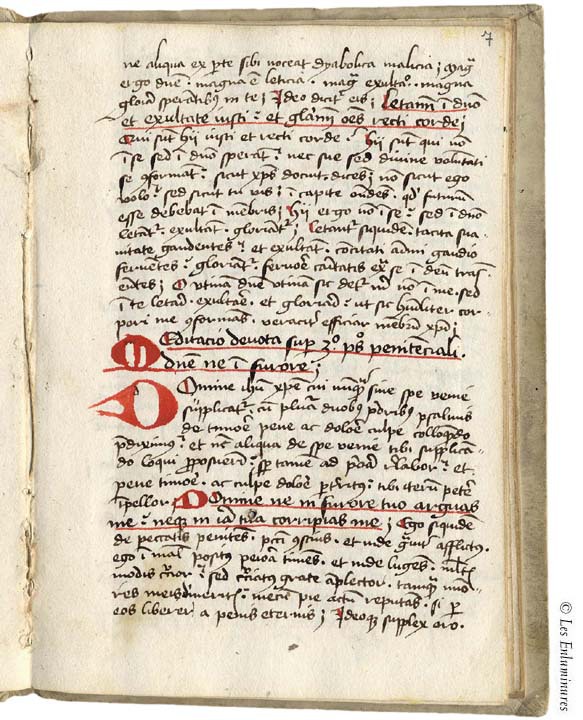 7
ne aliqua ex parte sibi noceat dyabolica malicia Mag
ergo dne magna e leticia mag exultao magna
gloria sperantibus in te Ideo dicat eis Letami i dno
et exultate iusti et glami oes recti corde
Qui sunt hii iusti et recti corde hii sunt qui no
i se sed i dno sperat nec sue sed divine voluntati
se 9format sicut xps docuit dices no sicut ego
volo sed sicut tu vis i capite ondes qd futurum
esse debebat i membris hii ergo no i se sed i dno
letat exultat gloriat letant siquide tacita sua
uitate gaudentes et exultat cocitati animi gaudio
feruentes gloriat feruore caritatis
entes O utina dne utina sic no i me sed
i te letad exultare et gloriad ut sic humiliter cor
pori me 9formans veraciter efficiar membru xpi
Meditacio deuota sup 3o ps penitenciali
dne ne i furore
Domine ihu xpe cui nuq sine spe venie
supplicat cu plura duobus psalmis
de timore pene ac dolore culpe colloquedo
et ne aliqua de spe venie tibi supplica
do loqui proposueri tamen ad et
pene timore ac culpe dolore tibi iteru petere
ipellor Domine ne in furore tuo arguas
me neq in ira tua corripias me Ego siquide
de peccatis penites 9scius et inde afflictus
ego i malis positus peiora times et inde luges
modis sed grate aplector tamq
res meis
eos liberer a penis eternis Ideoq supplex oro
© Les Enluminures